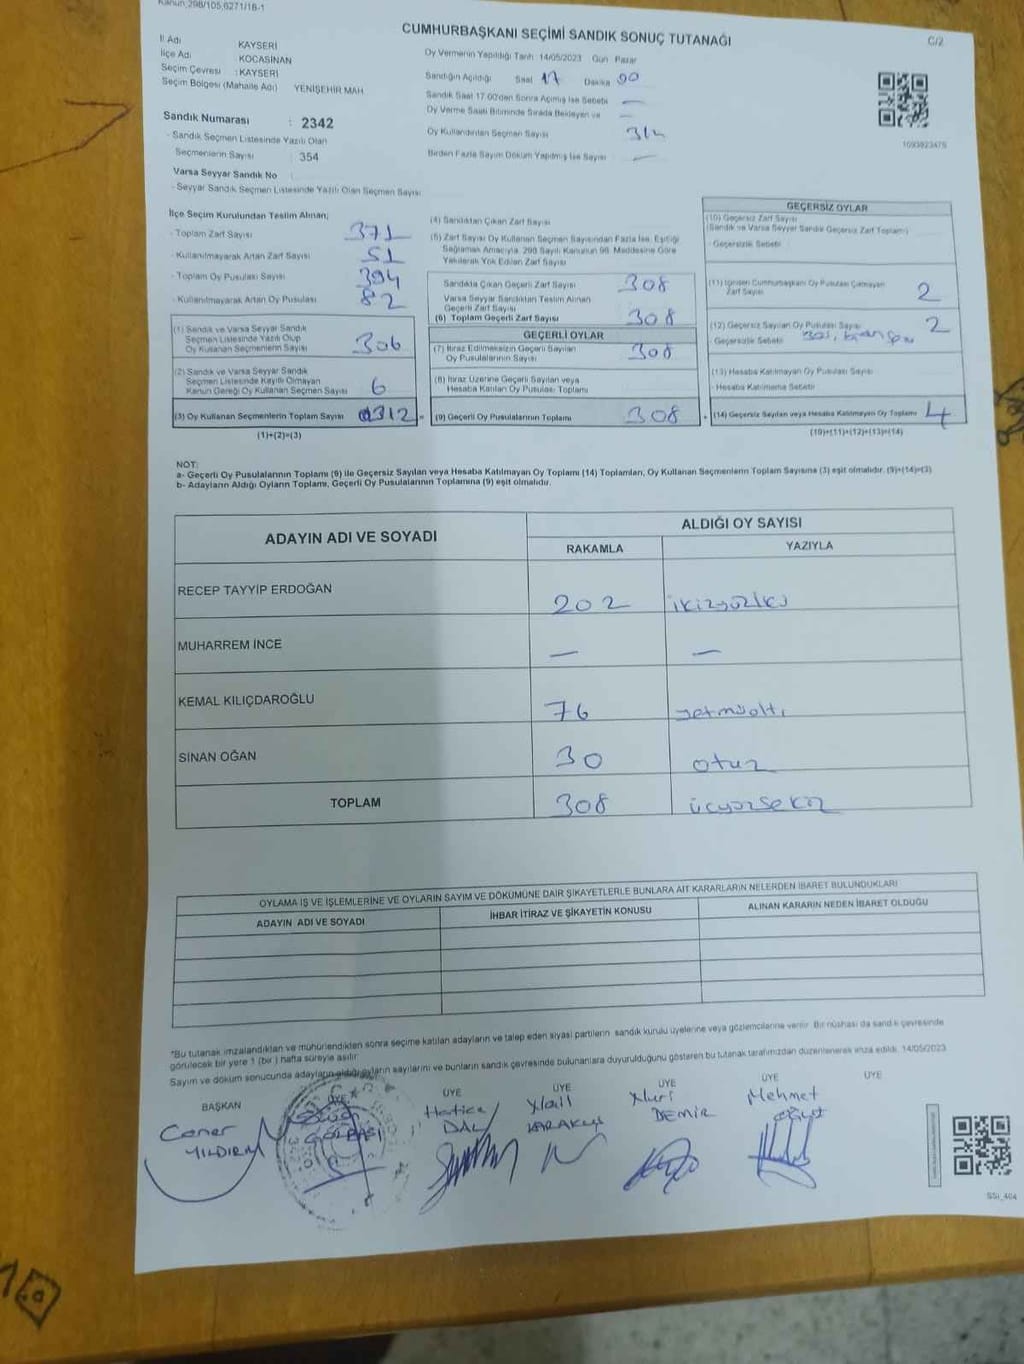 Kanun,298/105,6271/18-1
CUMHURBAŞKANI SEÇİMİ SANDIK SONUÇ TUTANAĞI
C/2
İl Adı KAYSERİ
İlçe Adı KOCASİNAN
Seçim Çevresi : KAYSERİ
Seçim Bölgesi (Mahalle Adı) YENİŞEHİR MAH
Sandık Numarası : 2342
- Sandık Seçmen Listesinde Yazılı Olan
Seçmenlerin Sayısı : 354
Varsa Seyyar Sandık No
- Seyyar Sandık Seçmen Listesinde Yazılı Olan Seçmen Sayısı
Oy Vermenin Yapıldığı Tarih 14/05/2023 Gün Pazar
Sandığın Açıldığı Saat 17 Dakika 00
Sandık Saat 17.00'den Sonra Açılmış İse Sebebi —
Oy Verme Saati Bitiminde Sırada Bekleyen ve —
Oy Kullandırılan Seçmen Sayısı 312
Birden Fazla Sayım Döküm Yapılmış İse Sayısı —
1093923475
İlçe Seçim Kurulundan Teslim Alınan;
- Toplam Zarf Sayısı 371
- Kullanılmayarak Artan Zarf Sayısı 51
- Toplam Oy Pusulası Sayısı 394
- Kullanılmayarak Artan Oy Pusulası 82
(1) Sandık ve Varsa Seyyar Sandık
Seçmen Listesinde Yazılı Olup
Oy Kullanan Seçmenlerin Sayısı 306
(2) Sandık ve Varsa Seyyar Sandık
Seçmen Listesinde Kayıtlı Olmayan
Kanun Gereği Oy Kullanan Seçmen Sayısı 6
(3) Oy Kullanan Seçmenlerin Toplam Sayısı 312
(1)+(2)=(3)
(4) Sandıktan Çıkan Zarf Sayısı
(5) Zarf Sayısı Oy Kullanan Seçmen Sayısından Fazla İse, Eşitliği
Sağlamak Amacıyla, 298 Sayılı Kanunun 98. Maddesine Göre
Yakılarak Yok Edilen Zarf Sayısı
Sandıkta Çıkan Geçerli Zarf Sayısı 308
Varsa Seyyar Sandıktan Teslim Alınan
Geçerli Zarf Sayısı
(6) Toplam Geçerli Zarf Sayısı 308
GEÇERLİ OYLAR
(7) İtiraz Edilmeksizin Geçerli Sayılan
Oy Pusulalarının Sayısı 308
(8) İtiraz Üzerine Geçerli Sayılan veya
Hesaba Katılan Oy Pusulası Toplamı
(9) Geçerli Oy Pusulalarının Toplamı 308
GEÇERSİZ OYLAR
(10) Geçersiz Zarf Sayısı
(Sandık ve Varsa Seyyar Sandık Geçersiz Zarf Toplamı)
- Geçersizlik Sebebi
(11) İçinden Cumhurbaşkanı Oy Pusulası Çıkmayan
Zarf Sayısı 2
(12) Geçersiz Sayılan Oy Pusulası Sayısı 2
- Geçersizlik Sebebi
(13) Hesaba Katılmayan Oy Pusulası Sayısı
- Hesaba Katılmama Sebebi
(14) Geçersiz Sayılan veya Hesaba Katılmayan Oy Toplamı 4
(10)+(11)+(12)+(13)=(14)
NOT:
a- Geçerli Oy Pusulalarının Toplamı (9) ile Geçersiz Sayılan veya Hesaba Katılmayan Oy Toplamı (14) Toplamları, Oy Kullanan Seçmenlerin Toplam Sayısına (3) eşit olmalıdır. (9)+(14)=(3)
b- Adayların Aldığı Oyların Toplamı, Geçerli Oy Pusulalarının Toplamına (9) eşit olmalıdır.
ADAYIN ADI VE SOYADI
ALDIĞI OY SAYISI
RAKAMLA YAZIYLA
RECEP TAYYİP ERDOĞAN 202 ikiyüziki
MUHARREM İNCE — —
KEMAL KILIÇDAROĞLU 76 yetmişaltı
SİNAN OĞAN 30 otuz
TOPLAM 308 üçyüzsekiz
OYLAMA İŞ VE İŞLEMLERİNE VE OYLARIN SAYIM VE DÖKÜMÜNE DAİR ŞİKAYETLERLE BUNLARA AİT KARARLARIN NELERDEN İBARET BULUNDUKLARI
ADAYIN ADI VE SOYADI İHBAR İTİRAZ VE ŞİKAYETİN KONUSU ALINAN KARARIN NEDEN İBARET OLDUĞU
*Bu tutanak imzalandıktan ve mühürlendikten sonra seçime katılan adayların ve talep eden siyasi partilerin sandık kurulu üyelerine veya gözlemcilerine verilir. Bir nüshası da sandık çevresinde
görülecek bir yere 1 (bir) hafta süreyle asılır.
Sayım ve döküm sonucunda adayların aldığı oyların sayılarını ve bunların sandık çevresinde bulunanlara duyurulduğunu gösteren bu tutanak tarafımızdan düzenlenerek imza edildi. 14/05/2023
BAŞKAN ÜYE ÜYE ÜYE ÜYE ÜYE ÜYE
Caner YILDIRIM
GÖLBAŞI
Hatice DAL
Halil KARAKUŞ
Nuri DEMİR
Mehmet
SSİ_404